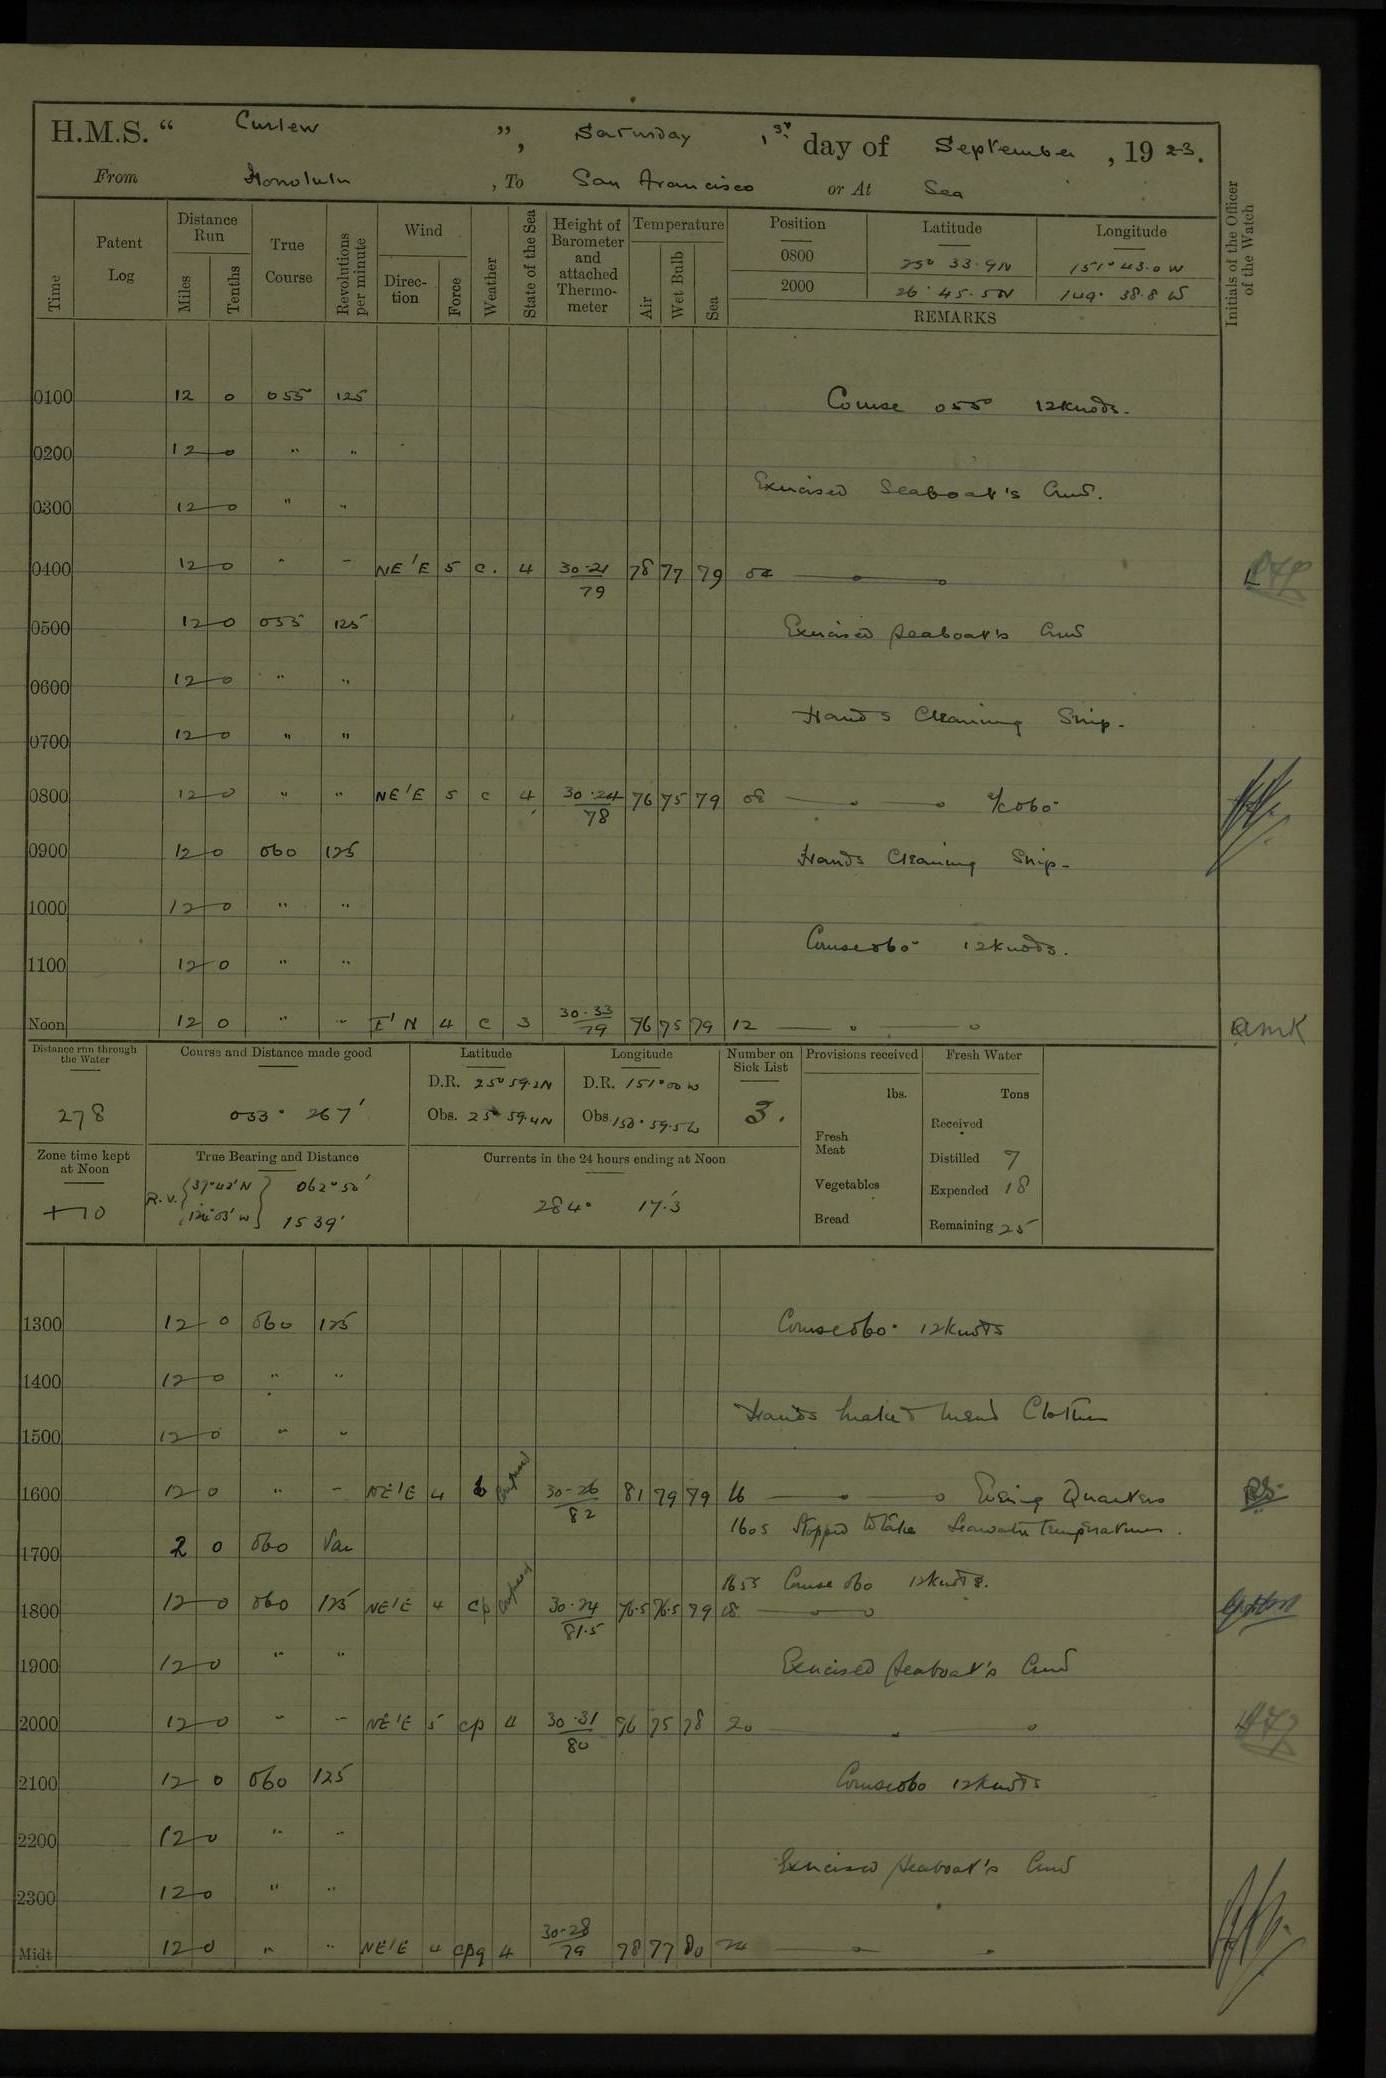 H.M.S. “ Curlew ”, Saturday, 1st day of September, 1923.
From Honolulu, To San Francisco or At Sea
Time
Patent Log
Distance Run
Miles
Tenths
True Course
Revolutions per minute
Wind
Direction
Force
Weather
State of the Sea
Height of Barometer and attached Thermometer
Temperature
Air
Wet Bulb
Sea
Position
Latitude
Longitude
Initials of the Officer of the Watch
0800 25° 33.9N 151° 43.0 W
2000 26° 45.5N 149° 38.8 W
REMARKS
0100 12 0 055 125 Course 055° 12 knots.
0200 12 0 " "
Exercised Seaboat's Crew.
0300 12 0 " "
0400 12 0 " " NE'E 5 c. 4 30.21/79 78 77 79 04
0500 12 0 055 125 Exercised seaboat's Crew
0600 12 0 " "
Hands Cleaning Ship.
0700 12 0 " "
0800 12 0 " " NE'E 5 c 4 30.24/78 76 75 79 08 a/c 060°
0900 12 0 060 125 Hands Cleaning Ship.
1000 12 0 " "
Course 060° 12 knots.
1100 12 0 " "
Noon 12 0 " " E'N 4 c 3 30.33/79 76 75 79 12 AMK
Distance run through the Water
278
Course and Distance made good
053° 267'
Latitude
D.R. 25° 59.2N
Obs. 25° 59.4N
Longitude
D.R. 151° 00 W
Obs. 150° 59.5W
Number on Sick List
3.
Provisions received
lbs.
Fresh Meat
Vegetables
Bread
Fresh Water
Tons
Received
Distilled 7
Expended 18
Remaining 25
Zone time kept at Noon
+10
True Bearing and Distance
R.V. { 37° 42' N } 062° 50'
{ 124° 03' W } 1539'
Currents in the 24 hours ending at Noon
284° 17.3'
1300 12 0 060 125 Course 060° 12 knots
1400 12 0 " "
Hands make & mend Clothes
1500 12 0 " "
1600 12 0 " " NE'E 4 b Confused 30.26/82 81 79 79 16 Evening Quarters
1605 Stopped to take Seawater temperatures.
1700 2 0 060 Var
1655 Course 060 12 knots.
1800 12 0 060 125 NE'E 4 cp Confused 30.24/81.5 76.5 76.5 79 18
1900 12 0 " " Exercised seaboat's Crew
2000 12 0 " " NE'E 5 cp 4 30.31/80 76 75 78 20
2100 12 0 060 125 Course 060 12 knots
2200 12 0 " "
Exercised seaboat's Crew
2300 12 0 " "
Midt 12 0 " " NE'E 4 cpq 4 30.28/79 78 77 80 24